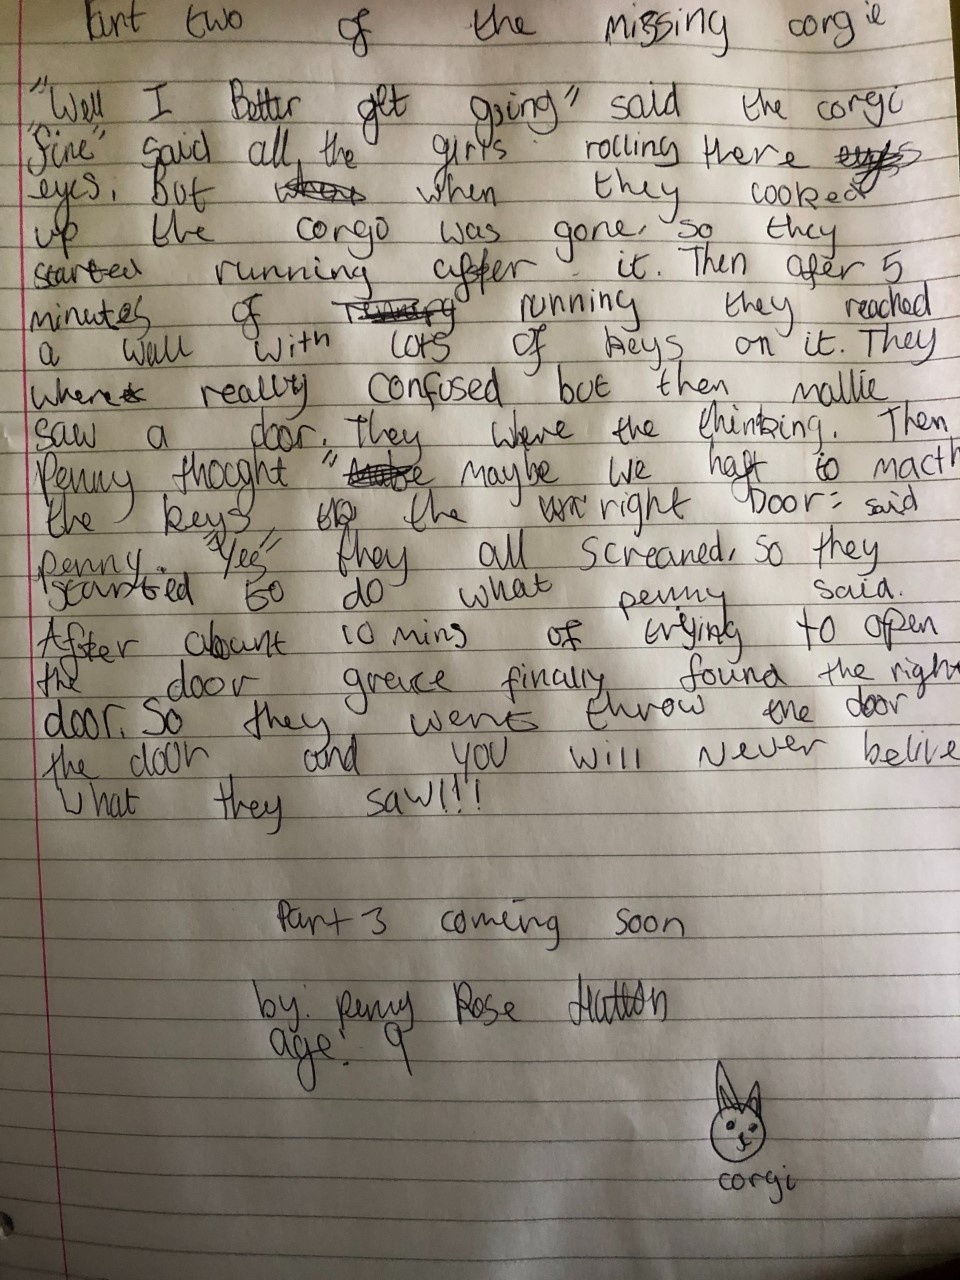 Part two of the missing corgie
"Well I Better get going" said the corgi
"fine" said all, the girls rolling there
eyes. But when they cooked
up the corgo was gone, so they
started running after it. Then afer 5
minutes of running they reached
a wall with lots of keys on it. They
where really confused but then mallie
saw a door. They where the thinking. Then
Penny thoght " maybe we haft to macth
the keys to the right Door" said
penny. "Yes" they all screaned, so they
started to do what penny said.
After abount 10 mins of trying to open
the door grace finally found the right
door. So they went throw the door
the door and you will never belive
what they saw!!!
Part 3 coming soon
by: Penny Rose Hutton
age: 9
corgi